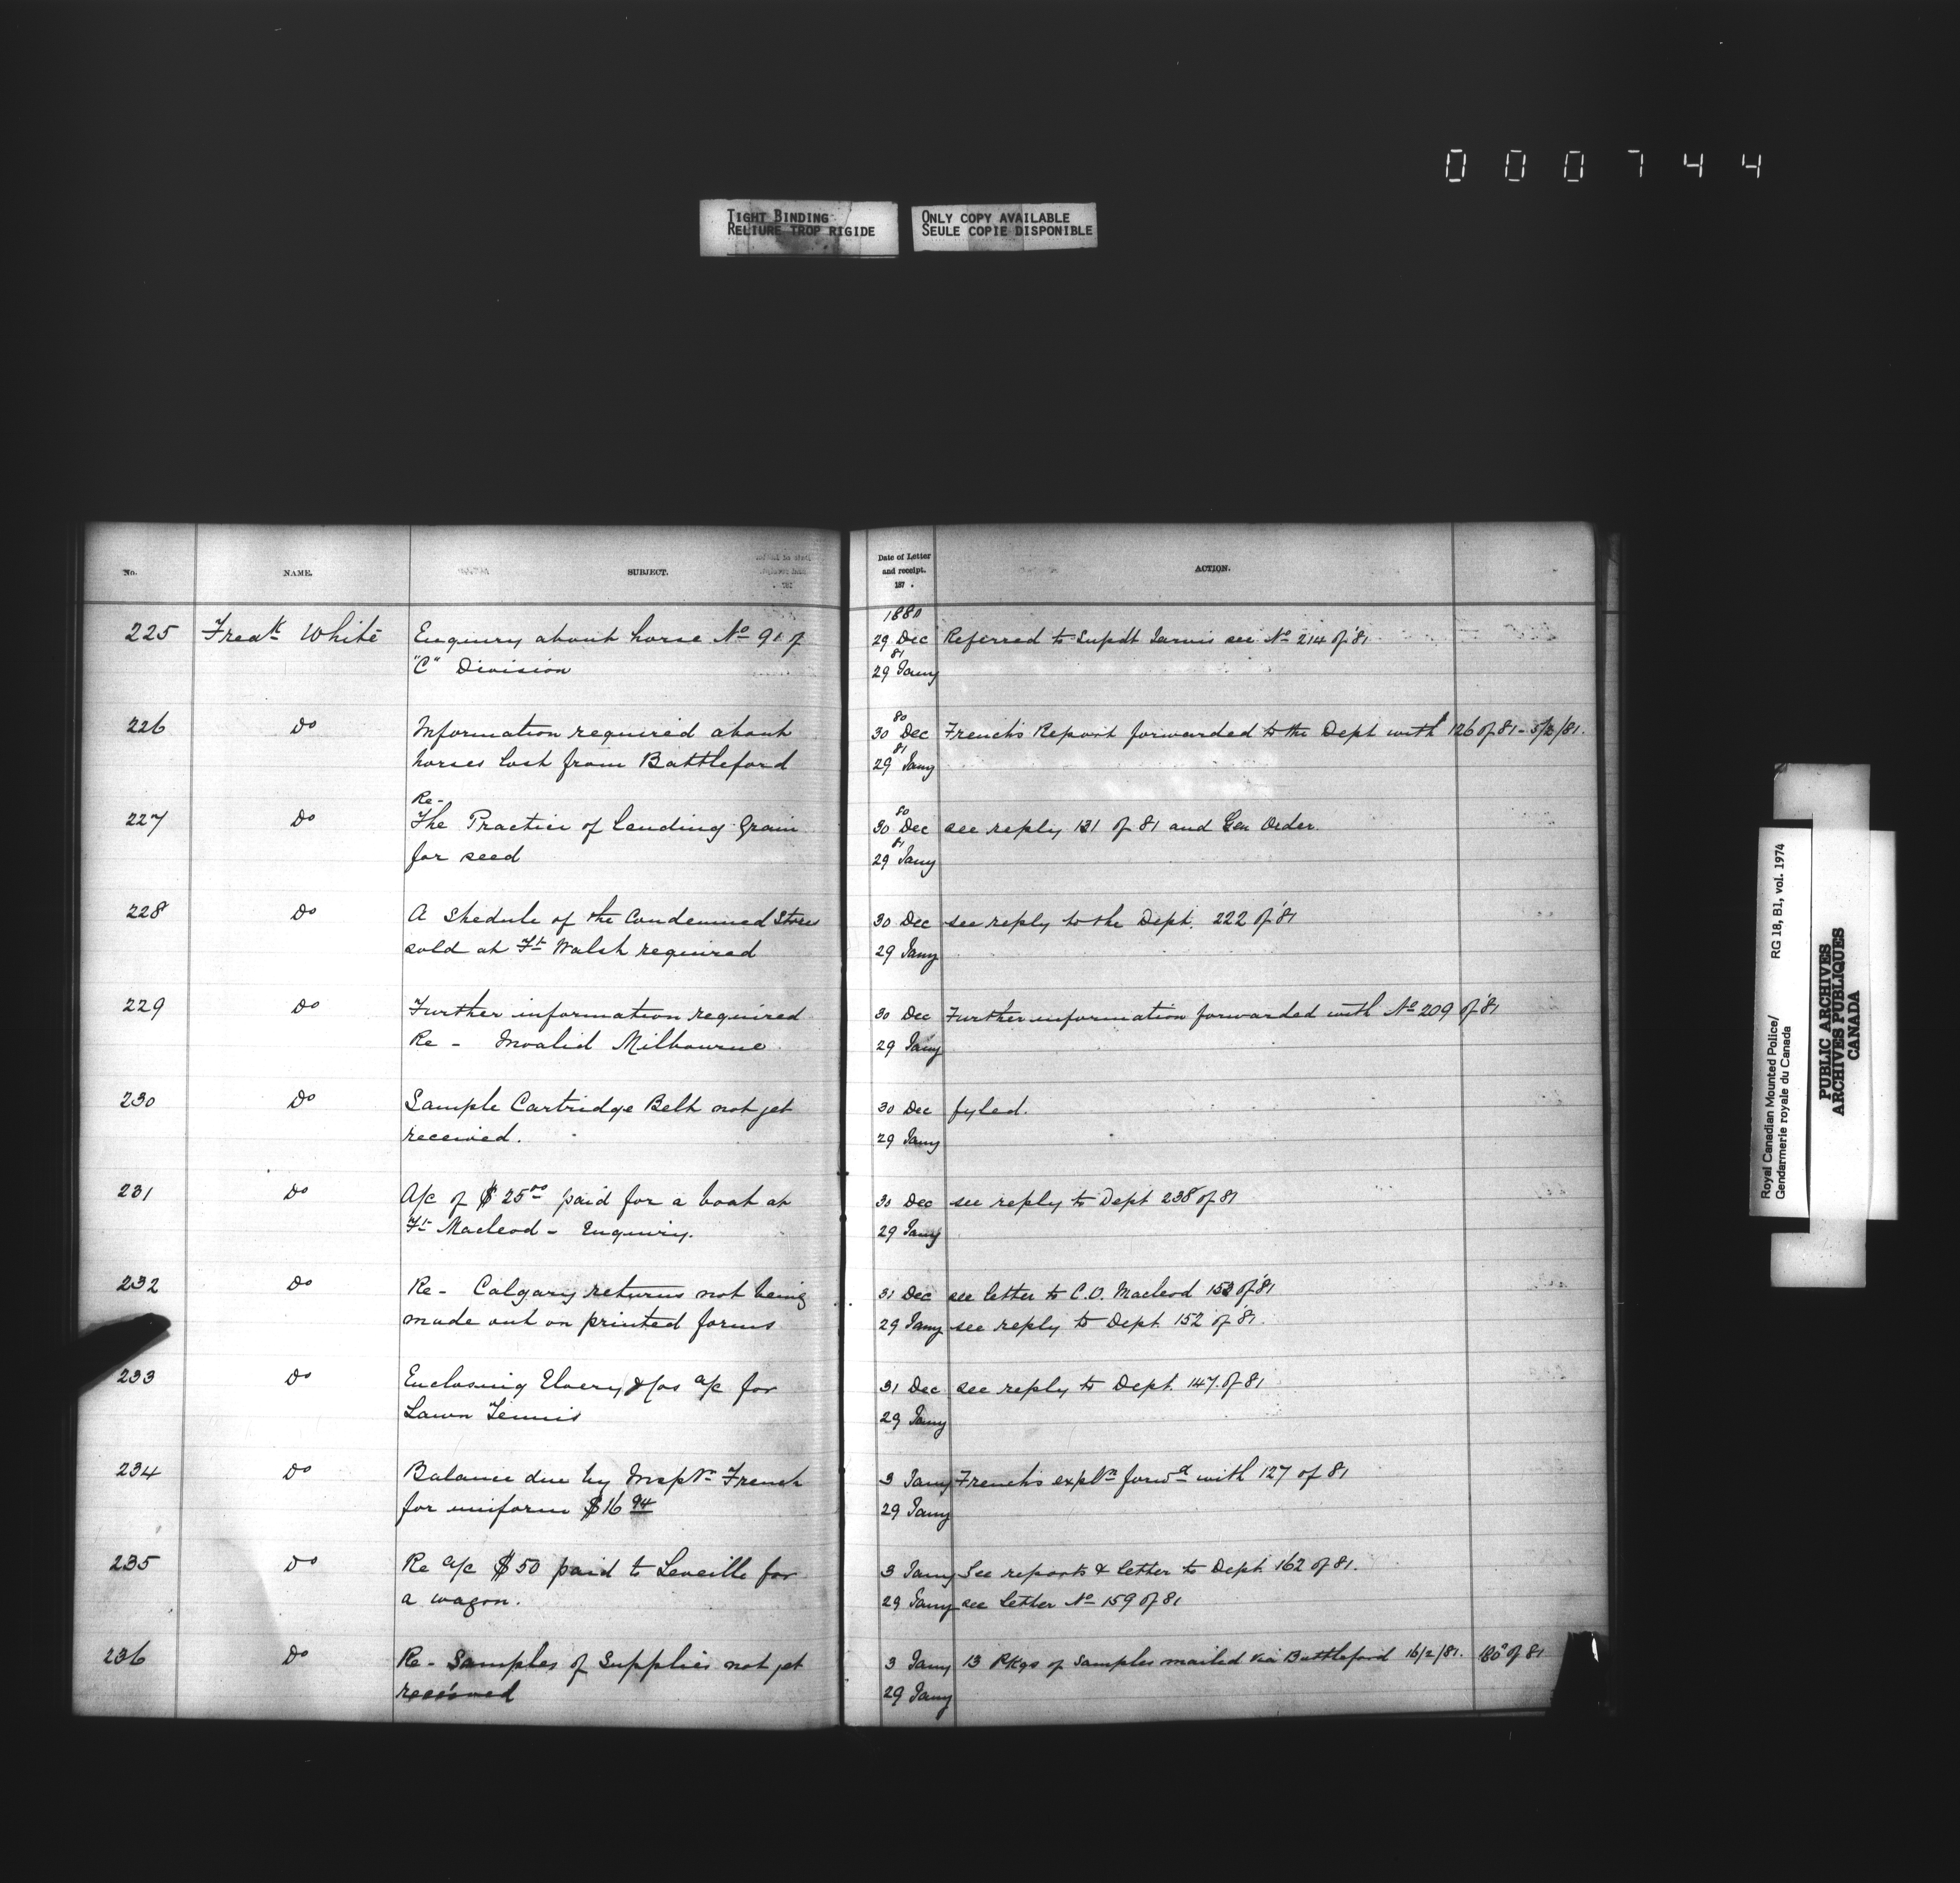 000744
TIGHT BINDING
RELIURE TROP RIGIDE
ONLY COPY AVAILABLE
SEULE COPIE DISPONIBLE
No. NAME. SUBJECT. Date of Letter and receipt. 187 . ACTION.
1880
225 Fredk White Enquiry about horse No 91 of 29 Dec Referred to Supdt Jarvis see No 214 of '81
"C" Division 81 29 Jany
226 Do Information required about 80 30 Dec French's Report forwarded to the Dept with 126 of 81 - 5/2/81.
horses lost from Battleford 81 29 Jany
Re-
227 Do The Practice of lending Grain 80 30 Dec see reply 131 of 81 and Gen Order.
for seed 81 29 Jany
228 Do A Shedule of the Condemned Stores 30 Dec see reply to the Dept. 222 of '81
sold at Ft Walsh required 29 Jany
229 Do Further information required 30 Dec Further information forwarded with No 209 of '81
Re - Invalid Milbourne 29 Jany
230 Do Sample Cartridge Belt not yet 30 Dec fyled.
received. 29 Jany
231 Do A/c of $25.00 paid for a boat at 30 Dec see reply to Dept 238 of 81
Ft Macleod - Enquiry. 29 Jany
232 Do Re - Calgary returns not being 31 Dec see letter to C.O. Macleod 153 of '81
made out on printed forms 29 Jany see reply to Dept. 152 of '81.
233 Do Enclosing Elvery & Cos a/c for 31 Dec see reply to Dept. 147 of 81
Lawn Tennis 29 Jany
234 Do Balance due by Inspr French 3 Jany French's expln forwd with 127 of 81
for uniform $16 94 29 Jany
235 Do Re a/c $50 paid to Leveille for 3 Jany See reports & letter to Dept. 162 of 81.
a wagon. 29 Jany see letter No 159 of 81
236 Do Re - Samples of Supplies not yet 3 Jany 13 Pkgs of Samples mailed via Battleford 16/2/81. of 81
received 29 Jany
Royal Canadian Mounted Police/ RG 18, B1, vol. 1974
Gendarmerie royale du Canada
PUBLIC ARCHIVES
ARCHIVES PUBLIQUES
CANADA